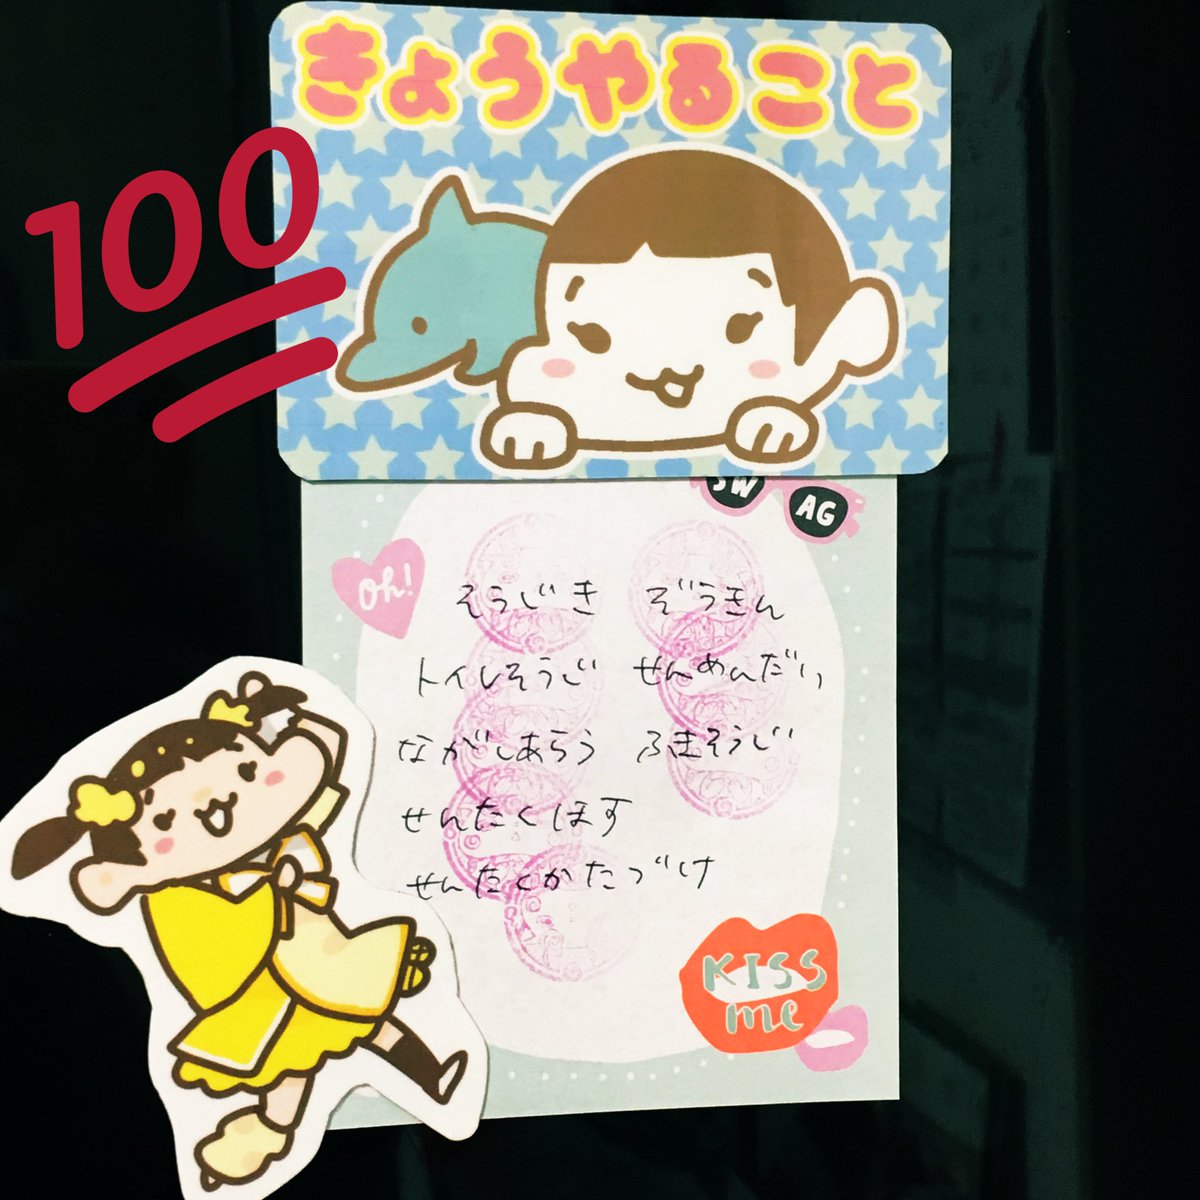 きょうやること
100
SW AG
Oh!
そうじき ぞうきん
トイレそうじ せんめんだい
ながしあらう ふきそうじ
せんたくほす
せんたくかたづけ
KISS
me